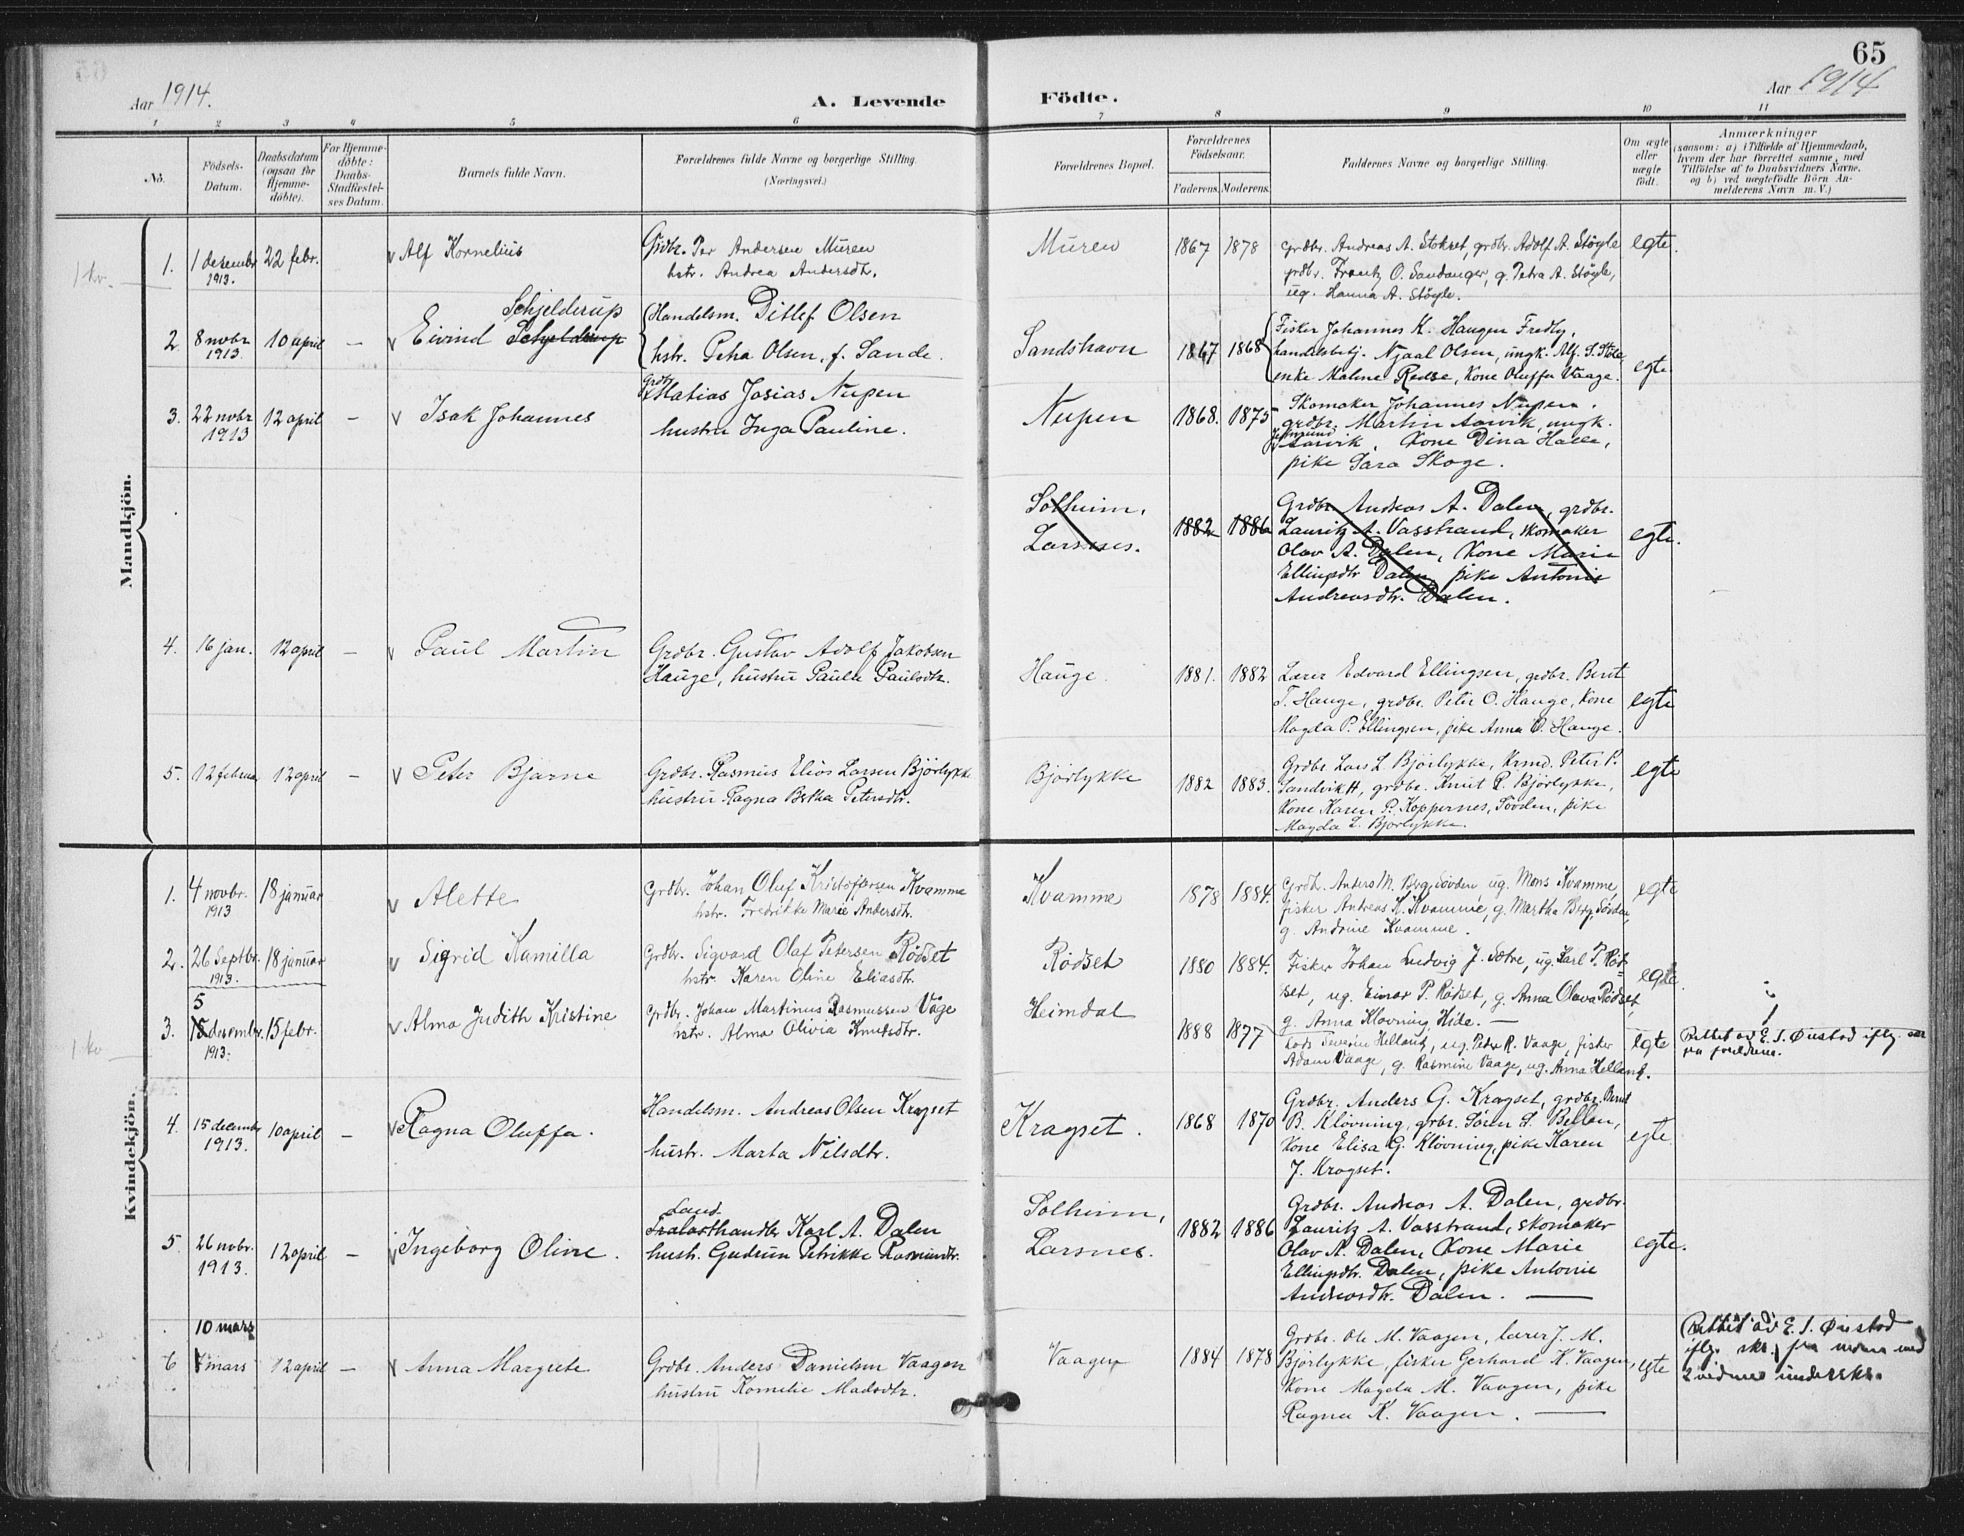 65
Aar 1914.
A. Levende
Födte.
Aar 1914
1 2 3 4 5 6 7 8 9 10 11
No.
Födsels-
Datum.
Daabsdatum
(ogsaa for
Hjemme-
döbte).
For Hjemme-
döbte:
Daabs-
Stadfæstel-
ses Datum.
Barnets fulde Navn.
Forældrenes fulde Navne og borgerlige Stilling.
(Næringsvei.)
Forældrenes Bopæl.
Forældrenes
Födselsaar.
Faderens. Moderens.
Faddernes Navne og borgerlige Stilling.
Om ægte
eller
uægte
födt.
Anmærkninger
(saasom: a) i Tilfælde af Hjemmedaab,
hvem der har forrettet samme, med
Tilföielse af to Daabsvidners Navne,
og b) ved uægtefödte Börn An-
melderens Navn m. V.)
Mandkjön.
1 kv.
1.
1 desembr
1913.
22 febr.
Alf Kornelius
Grdbr. Per Andersen Muren
hstr. Andrea Andersdtr.
Muren
1867
1878
grdbr. Andreas A. Stokset, grdbr. Adolf A. Støyle
grdbr. Frantz O. Sandanger, g. Petra A. Støyle,
ug. Hanna A. Støyle.
egte.
2
8 novbr
1913.
10 april
—
Schjelderup
Eivind Schjelderup
Handelsm. Ditlef Olsen
hstr. Petra Olsen, f. Sande.
Sandshavn
1867
1868
Fisker Johannes K. Haugen Fredly,
handelsbetj. Njaal Olsen, ungk. Alf. S. Støle
enke Malene Redse, Kone Oluffa Vaage.
egte
3.
22 novbr
1913
12 april
—
Isak Johannes
Grdbr
Matias Josias Nupen
hustru Inga Pauline.
Nupen
1868.
1875
Skomaker Johannes Nupen,
grdbr. Martin Aarvik, ungk.
Aarvik, Kone Dina Halle,
pike Sara Skoge.
Solheim,
Larsnes.
1882
1886
Grdbr. Andreas A. Dalen, grdbr.
Lauritz A. Vasstrand, skomaker
Olav A. Dalen, Kone Marie
Ellingsdtr Dalen, pike Antonie
Andreasdtr. Dalen.
egte.
4.
16 jan.
12 april
—
Paul Martin
Grdbr. Gustav Adolf Jakobsen
Hauge, hustru Paula Paulsdtr.
Hauge.
1881.
1882
Lærer Edvard Ellingsen, grdbr. Berit
T. Hauge, grdbr. Peter O. Hauge, Kone
Magda P. Ellingsen, pike Anna O. Hauge.
egte
5.
12 februa
12 april
—
Peter Bjarne
Grdbr. Rasmus Elias Larsen Bjørlykke
hustru Ragna Betha Petersdtr.
Bjørlykke
1882
1883.
Grdbr Lars L Bjørlykke, Krmd. Peter P.
Sandvik, grdbr. Knut R. Bjørlykke,
Kone Karen P. Koppernes, Søvden, pike
Magda L. Bjørlykke.
egte
Kvindekjön.
1.
4 novbr.
1913
18 januar
Alette
Grdbr. Johan Oluf Kristoffersen Kvamme
hstr. Fredrikke Marie Andersdtr.
Kvamme
1878
1884.
Grdbr. Anders M. Berg, Søvden ug. Mons Kvamme,
fisker Andreas K. Kvamme, g. Martha Berg, Søvden,
g. Andrine Kvamme.
egte
2.
26 Septbr.
1913.
18 januar
Sigrid Kamilla
Grdbr. Sigvard Olaf Petersen Rødset
hstr. Karen Oline Eliasdtr.
Rødset
1880
1884.
Fisker Johan Ludvig J. Sætre, ug. Karl P. Rød-
set, ug. Einar P. Rødset, g. Anna Olava Rødset,
g. Anna Kløvning Hide. —
egte
1 kv
3.
5
15 desember
1913.
15 febr.
Alma Judith Kristine
Grdbr. Johan Martinus Rasmussen Våge
hstr. Alma Olivia Knutsdtr.
Heimdal
1888
1877
Lods Severin Helland, ug. Peder R. Vaage, fisker
Adam Vaage, g. Rasmine Vaage, ug. Anna Helland.
egte
Rettet av E. S. Ørstad iflg.
fra foreldrene.
4.
15 decembr
1913.
10 april
—
Ragna Oluffa.
Handelsm. Andreas Olsen Kragset
hustr. Marta Nilsdtr.
Kragset.
1868
1870
Grdbr. Anders G. Kragset, grdbr. Bernt
B. Kløvning, grbr. Søren S. Bellan,
Kone Elisa G. Kløvning, pike Karen
J. Kragset.
egte.
5.
26 novbr.
1913.
12 april
—
Ingeborg Oline.
Land-
Tralasthandler Karl A. Dalen
hustr. Gudrun Petrikke Rasmusdtr.
Solheim,
Larsnes.
1882
1886
Grdbr. Andreas A. Dalen, grdbr.
Lauritz A. Vasstrand, skomaker
Olav A. Dalen, Kone Marie
Ellingsdtr. Dalen, pike Antonie
Andreasdtr. Dalen. —
egte.
6
10 mars
mars
12 april
—
Anna Margrete
Grdbr. Anders Danielsen Vaagen
hustru Kornelie Madsdtr.
Vaagen
1884
1878
Grdbr. Ole M. Vaagen, lærer J. M.
Bjørlykke, fisker Gerhard K. Vaagen,
Kone Magda M. Vaagen, pike
Ragna K. Vaagen. —
egte
Rettet av E. S. Ørstad
iflg. skr. fra moren med
2 vidners underskr.